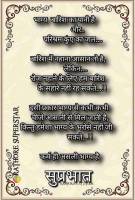 भाग्य बारिश का पानी है
और
परिश्रम कुंए का जल...
बारिश में नहाना आसान तो है,
लेकिन...
रोज नहाने के लिए हम बारिश
के सहारे नहीं रह सकते..!
इसी प्रकार भाग्य से कभी-कभी
चीजे आसानी से मिल जाती है,
किन्तु हमेशा भाग्य के भरोसे नहीं जी
सकते..!!
कर्म ही असली भाग्य है
सुप्रभात
RATHORE SUPERSTAR